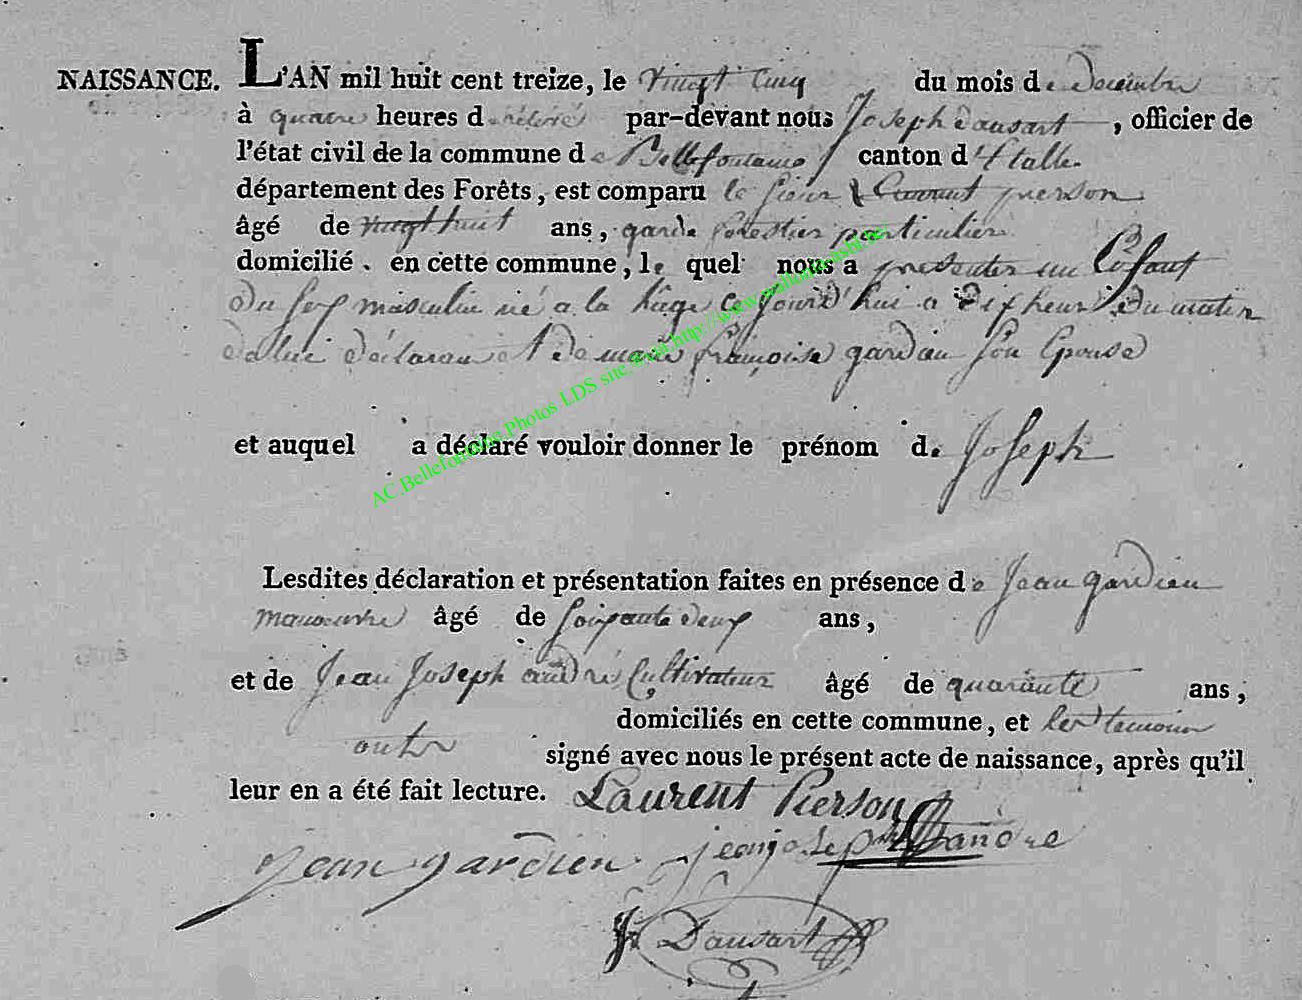 NAISSANCE. L'AN mil huit cent treize, le vingt cinq du mois de Decembre
à quatre heures de par-devant nous Joseph Dausart, officier de
l'état civil de la commune de Bellefontaine canton d'Etalle
département des Forêts, est comparu le sieur Laurent pierson
âgé de vingt huit ans, garde forestier particulier
domicilié en cette commune, le quel nous a presenter un Enfant
du sex masculin né a la hage ce jourd'hui a dix heur du matin
de lui déclarant et de marie françoise gardien son Epouse
et auquel a déclaré vouloir donner le prénom de Joseph
Lesdites déclaration et présentation faites en présence de Jean gardien
manouvre âgé de soixante deux ans,
et de Jean Joseph andré Cultivateur âgé de quarante ans,
domiciliés en cette commune, et les temoin
ont signé avec nous le présent acte de naissance, après qu'il
leur en a été fait lecture. Laurent Pierson
Jean gardien jean josep andre
J Dausart
AC.Bellefontaine.Photos LDS site